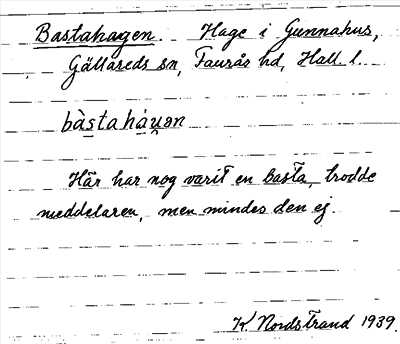 Bastahagen. Hage i Gunnahus,
Gällareds sn, Faurås hd, Hall. l.
bàstahàɡən
Här har nog varit en basta, trodde
meddelaren, men mindes den ej.
K. Nordstrand 1939.